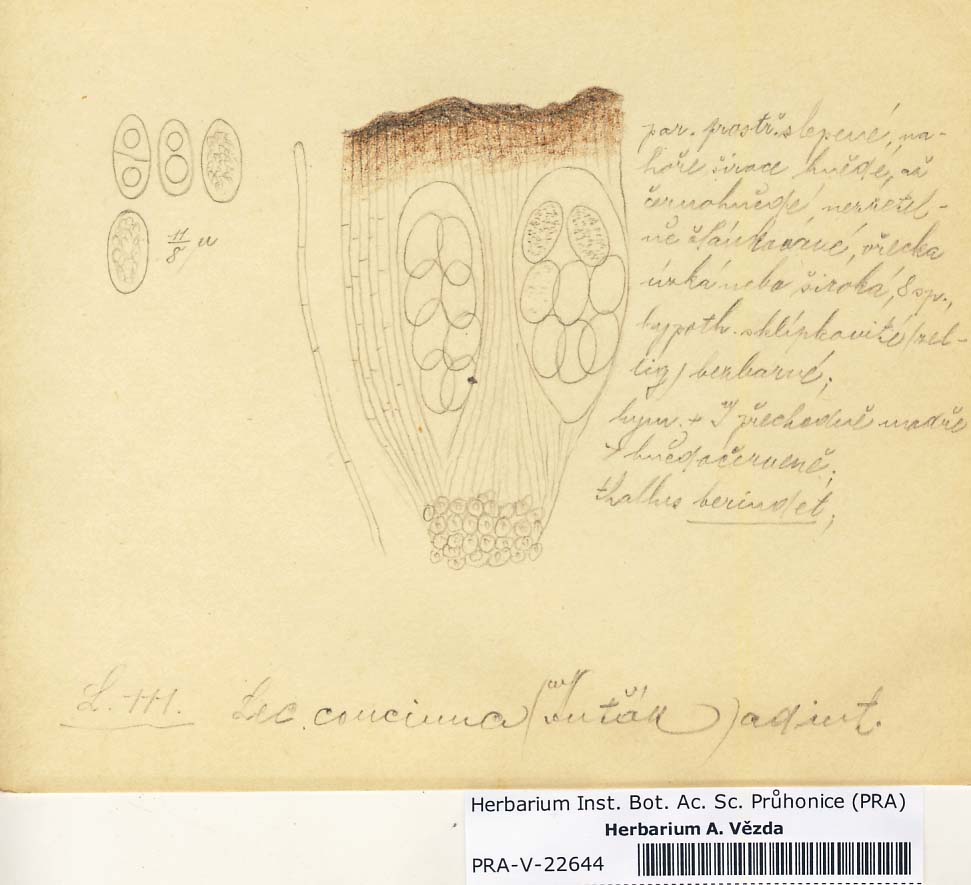 par. prostř. slepené, na-
hoře široce hnědé, až
černohnědé, nezřetel-
ně článkované, vřecka
úzká nebo široká, 8 sp.,
hypoth. sklípkovité (zel-
lig) bezbarvé;
hym. + J přechodně modře
hnědočerveně;
thallus
11/8 u
L. Lec. concinna adint.
Herbarium Inst. Bot. Ac. Sc. Průhonice (PRA)
Herbarium A. Vězda
PRA-V-22644